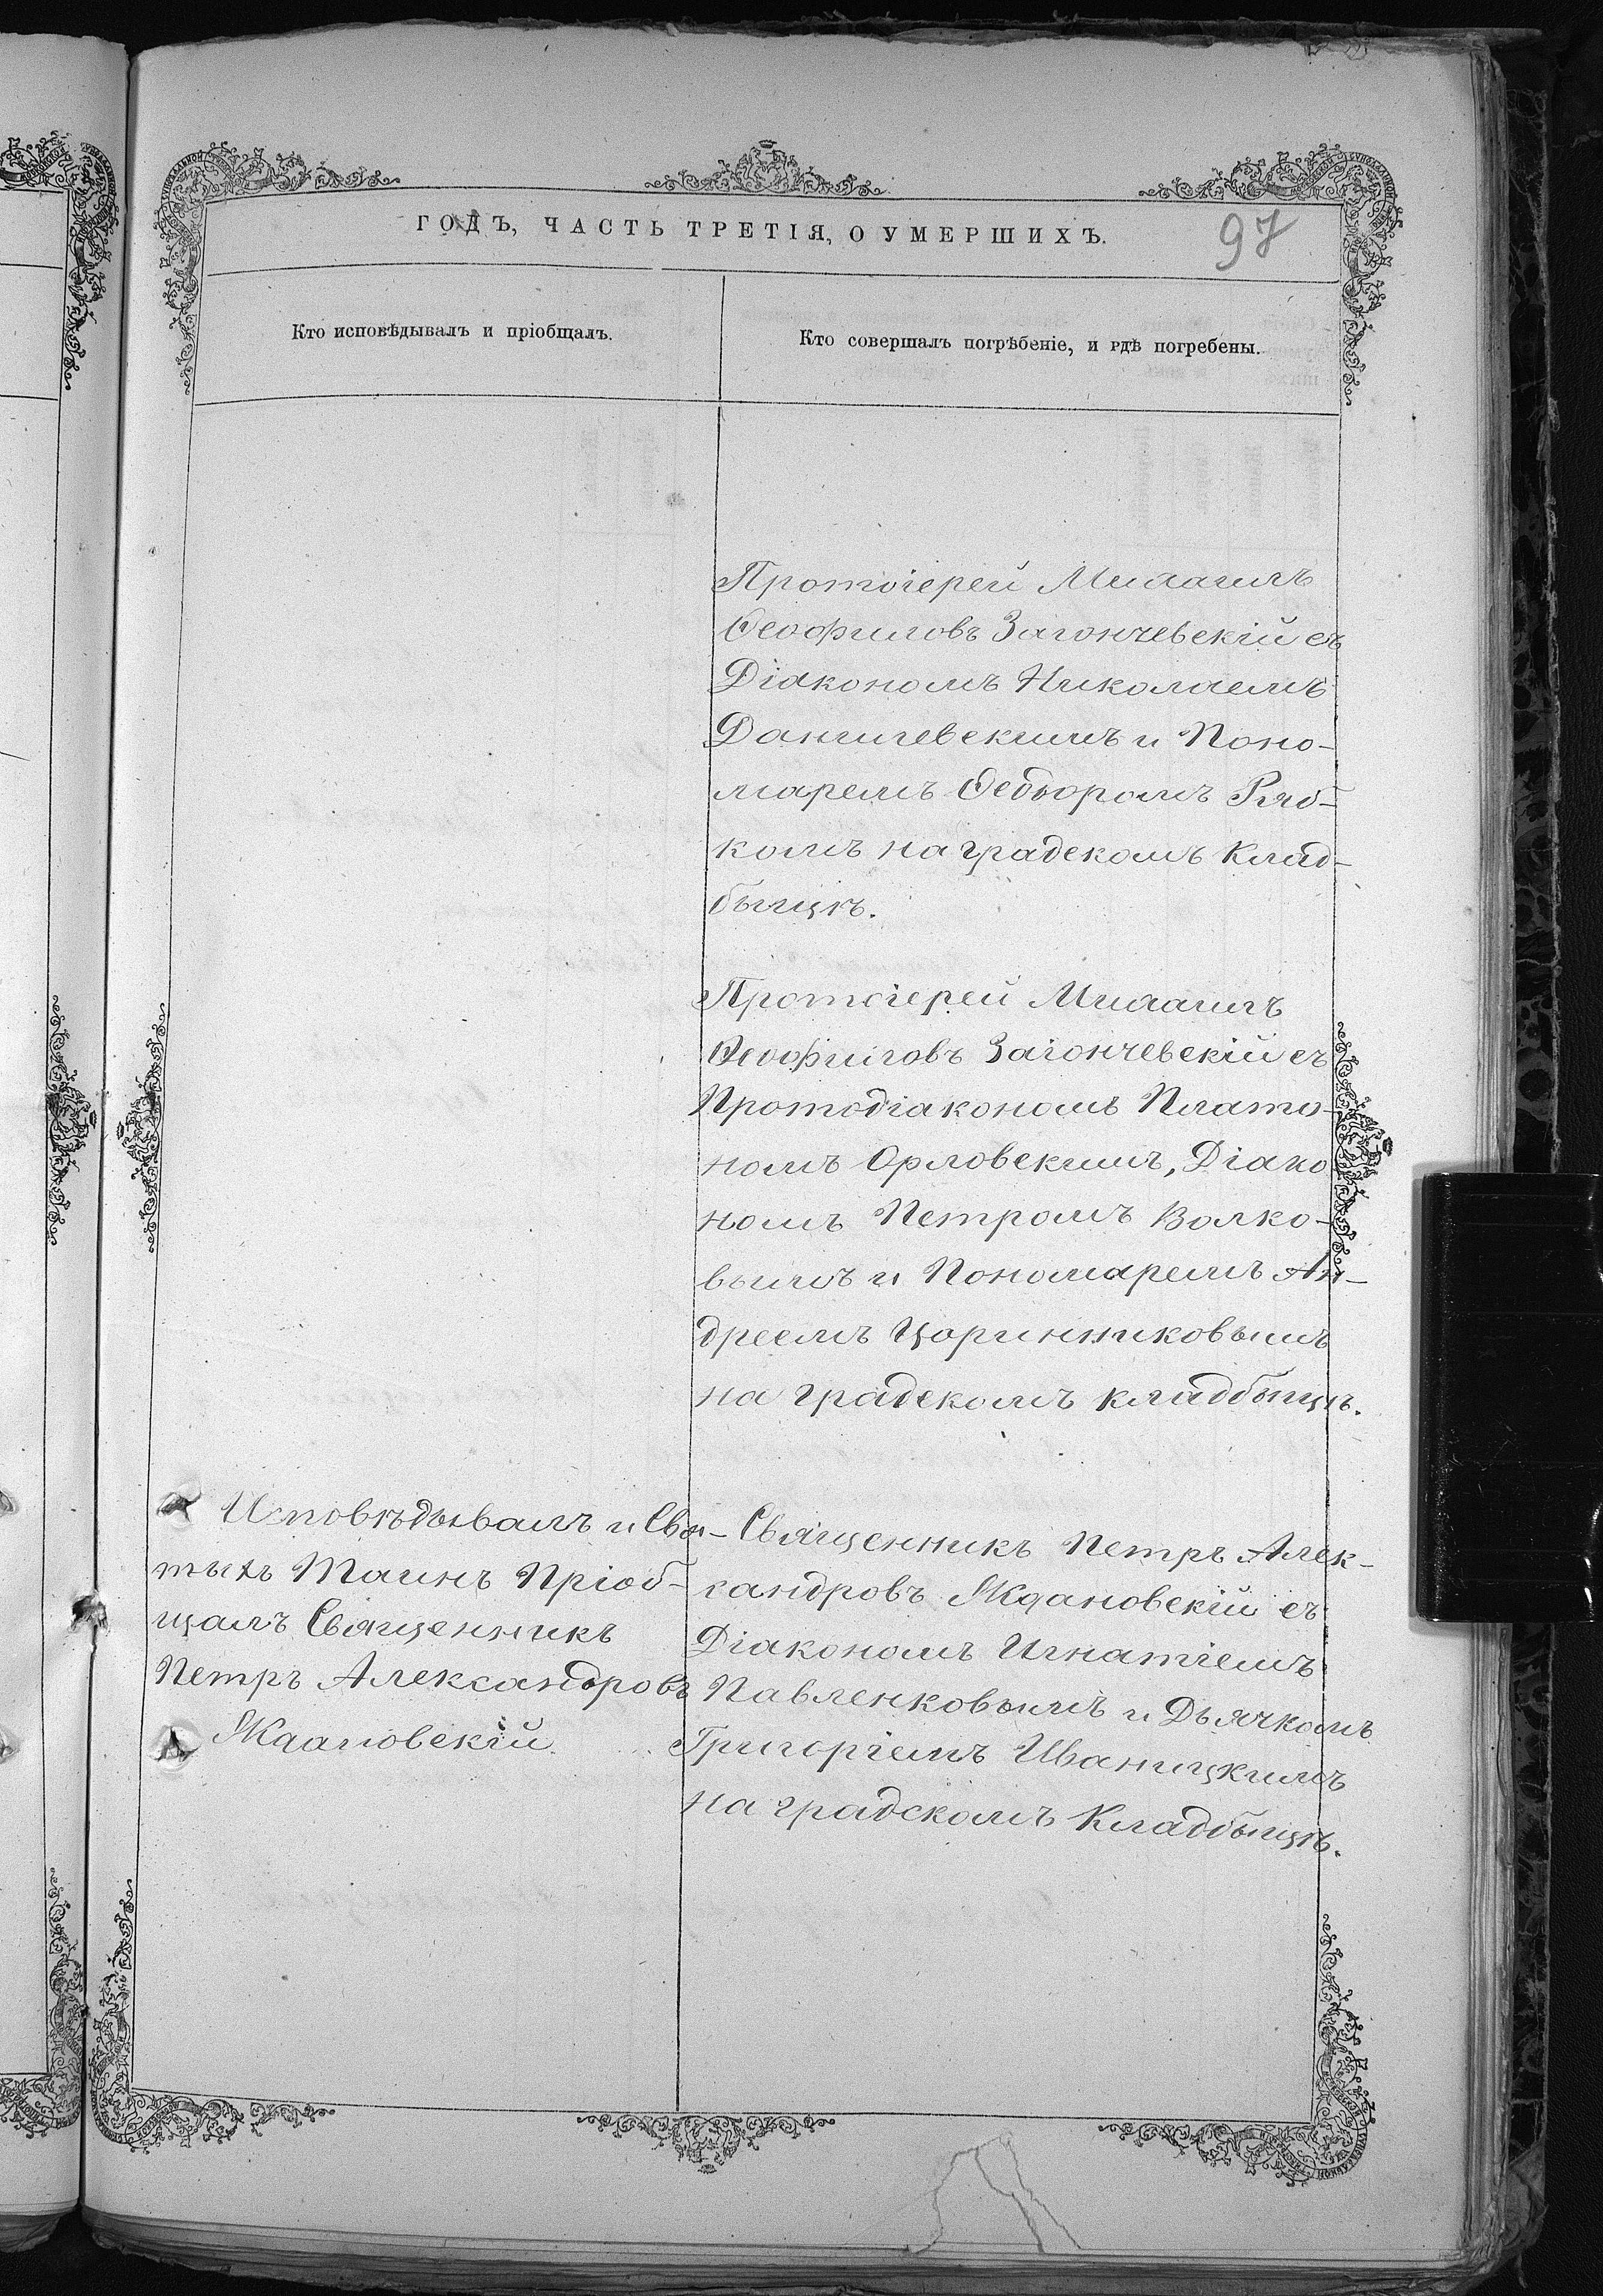 ГОДЪ, ЧАСТЬ ТРЕТІЯ, О УМЕРШИХЪ.
97
Кто исповѣдывалъ и пріобщалъ.
Кто совершалъ погрѣбеніе, и гдѣ погребены.
Протоіерей Михаилъ
Ѳеофиловъ Загончевскій съ
Діакономъ Николаемъ
Данчичевскимъ и Поно-
маремъ Ѳедоромъ Ряб-
комъ на градскомъ Клад-
быщѣ.
Протоіерей Михаилъ
Ѳеофиловъ Загончевскій съ
Протодіакономъ Плато-
номъ Орловскимъ, Діако
номъ Петромъ Волко-
вымъ и Пономаремъ Ан-
дреемъ Цоринниковымъ
на градскомъ кладбыщѣ.
Исповѣдывалъ и Свя-
тыхъ Таинъ Пріоб-
щалъ Священникъ
Петръ Александровъ
Ждановскій.
Священникъ Петръ Алек-
сандровъ Ждановскій съ
Діакономъ Игнатіемъ
Павленковымъ и Дьячкомъ
Григоріемъ Иваницкимъ
на градскомъ Кладбыщѣ.